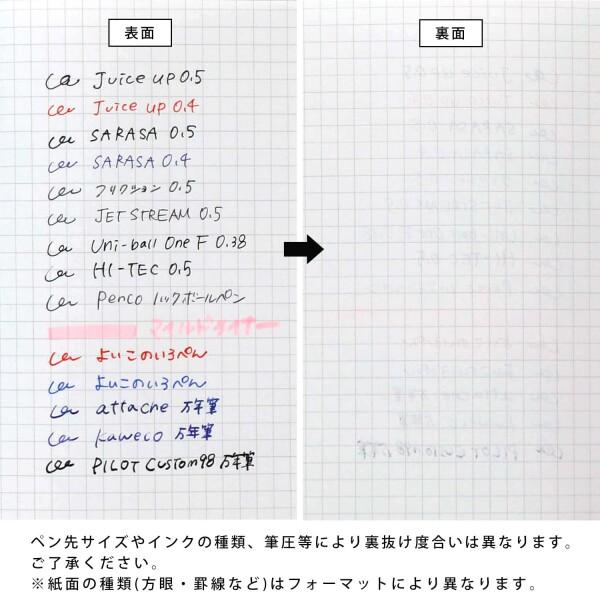 表面
ca Juice up 0.5
ca Juice up 0.4
ca SARASA 0.5
ca SARASA 0.4
ca フリクション 0.5
ca JETSTREAM 0.5
ca Uni-ball One F 0.38
ca HI-TEC 0.5
ca Penco ノックボールペン
マイルドライナー
ca よいこのいろぺん
ca よいこのいろぺん
ca attache 万年筆
ca Kaweco 万年筆
ca PILOT Custom98 万年筆
裏面
ペン先サイズやインクの種類、筆圧等により裏抜け度合いは異なります。
ご了承ください。
※紙面の種類(方眼・罫線など)はフォーマットにより異なります。